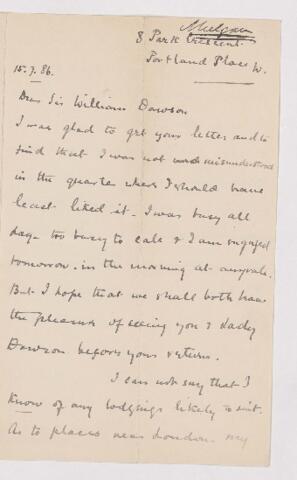 8 Park Crescent
Portland Place W.
15.7.86.
Dear Sir William Dawson
I was glad to get your letter and to
find that I was not misunderstood
in the quarter where I should have
least liked it. I was busy all
day - too busy to call & I am engaged
tomorrow in the morning at any rate.
But I hope that we shall both have
the pleasure of seeing you & Lady
Dawson before your return.
I can not say that I
know of any lodgings likely to suit.
As to places near London my